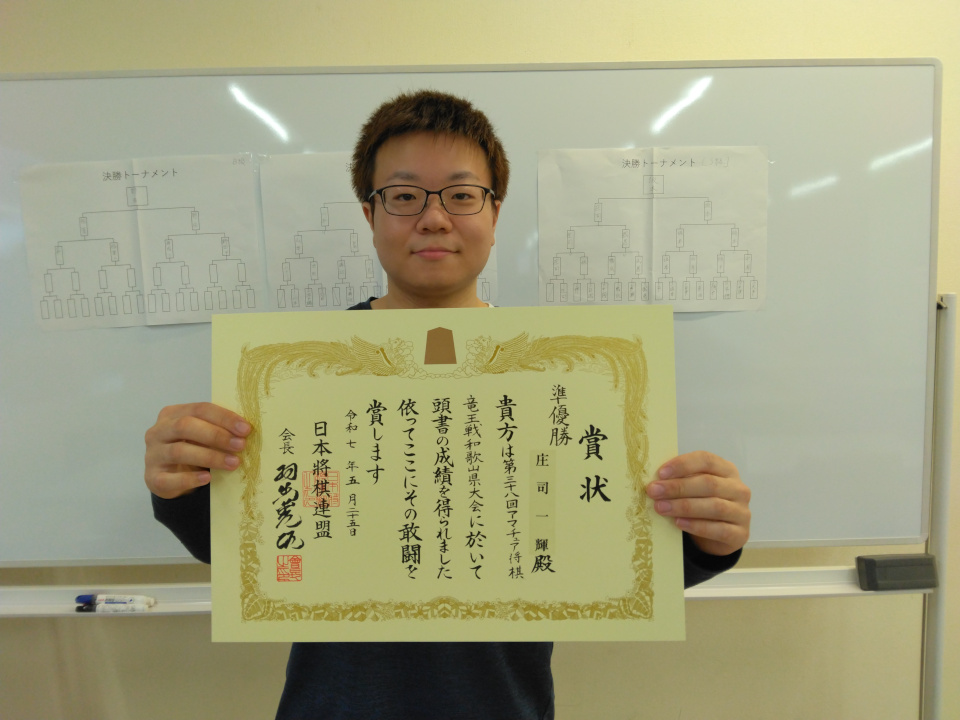 決勝トーナメント
決勝トーナメント
賞状
準優勝
庄司一輝殿
貴方は第三十八回アマチュア将棋
竜王戦和歌山県大会に於いて
頭書の成績を得られました
依ってここにその敢闘を
賞します
令和七年五月二十五日
日本将棋連盟
会長 羽生善治